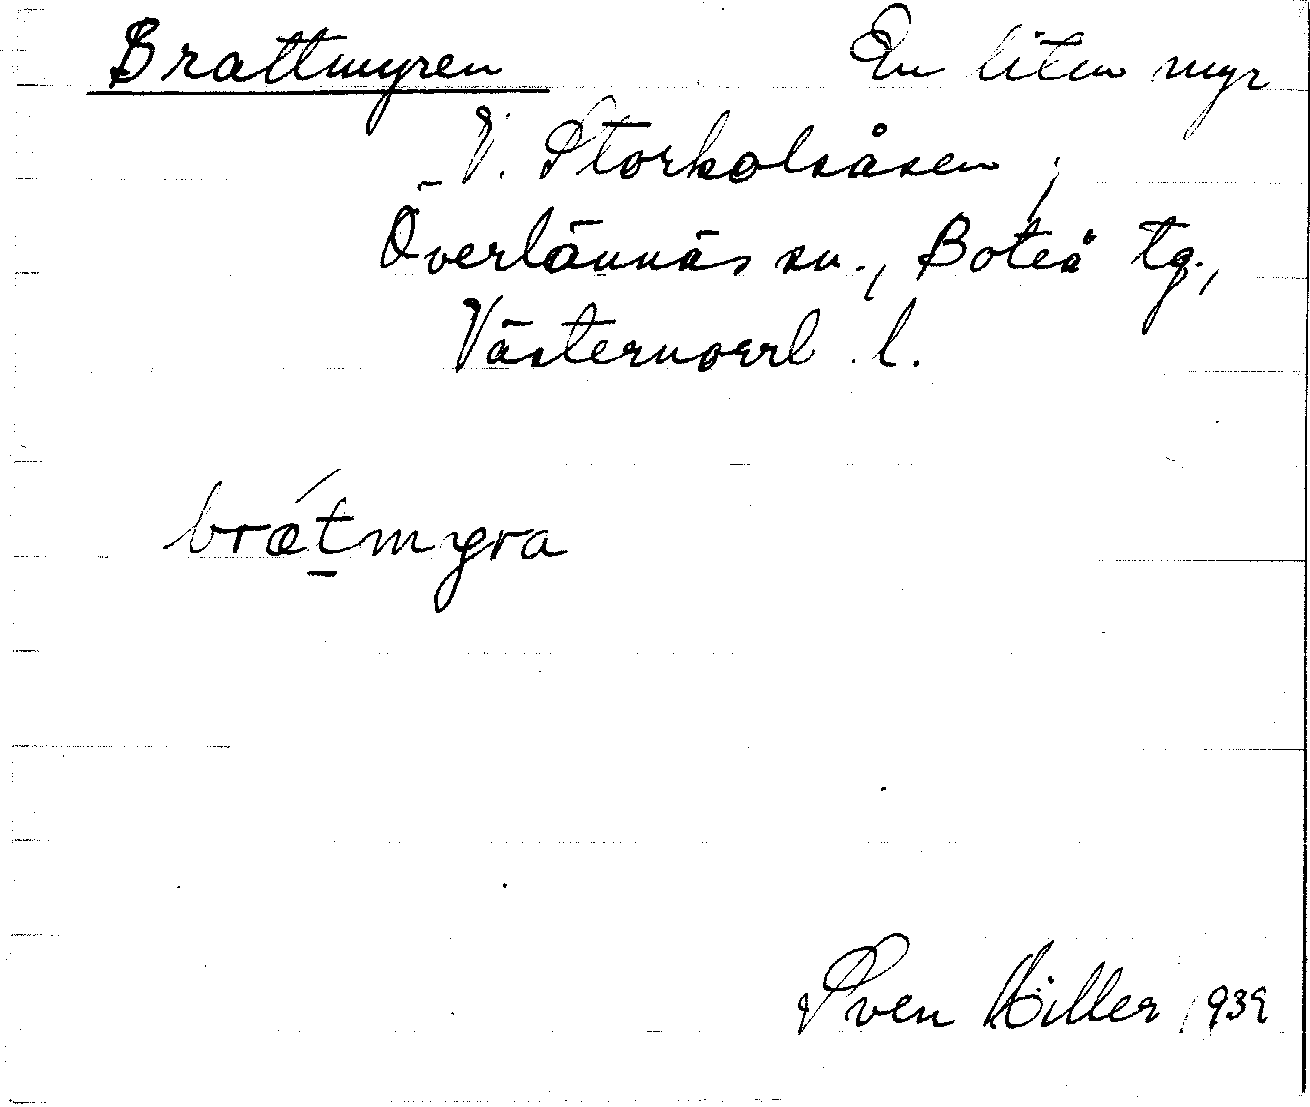 Brattmyren En liten myr
V. Storkolsåsen,
Överlännäs sn., Boteå tg.,
Västernorrl. l.
brátmyra
Sven Höller 1939